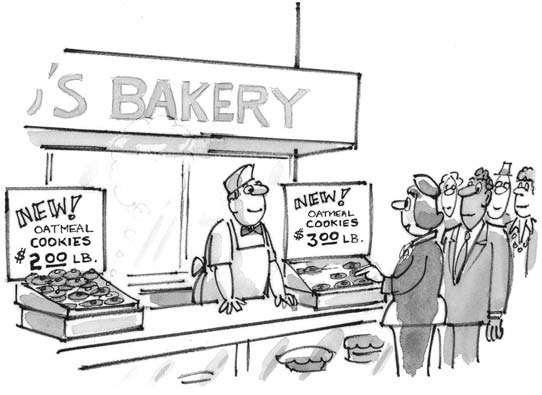 'S BAKERY
NEW!
OATMEAL
COOKIES
$2.00 LB.
NEW!
OATMEAL
COOKIES
$3.00 LB.